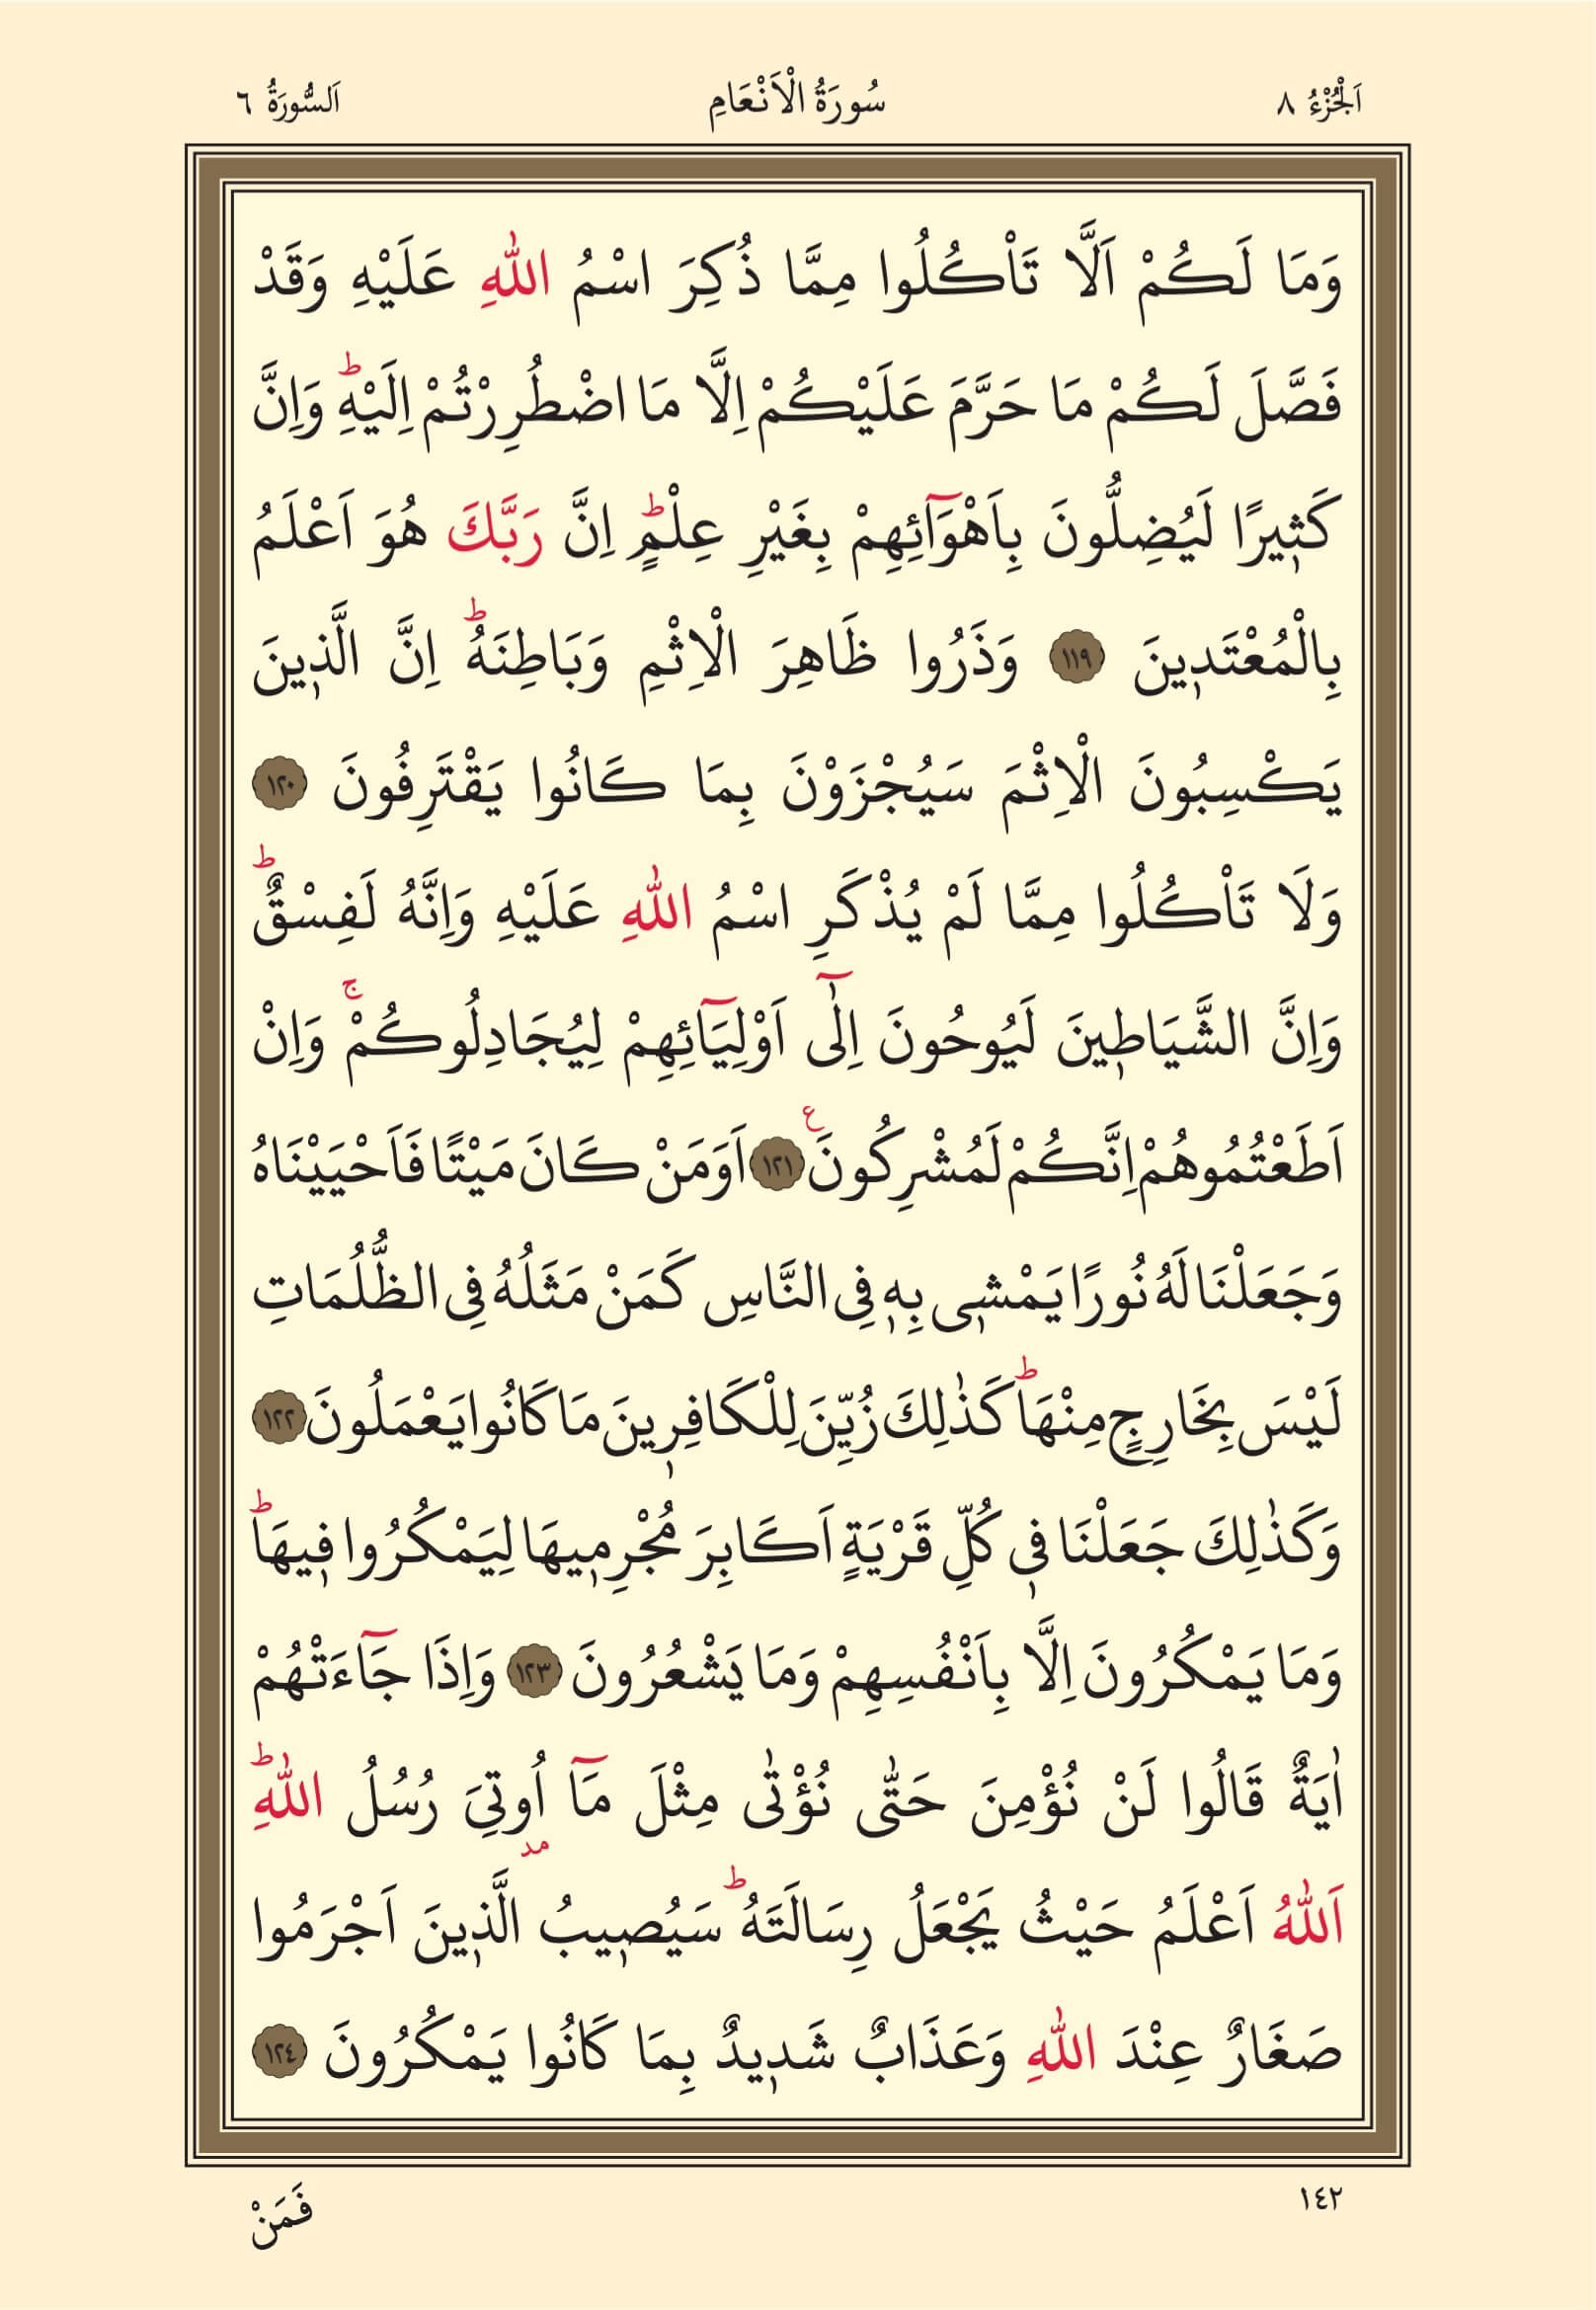 اَلْجُزْءُ ٨ سُورَةُ الْاَنْعَامِ اَلسُّورَةُ ٦
وَمَا لَكُمْ اَلَّا تَاْكُلُوا مِمَّا ذُكِرَ اسْمُ اللّٰهِ عَلَيْهِ وَقَدْ
فَصَّلَ لَكُمْ مَا حَرَّمَ عَلَيْكُمْ اِلَّا مَا اضْطُرِرْتُمْ اِلَيْهِؕ وَاِنَّ
كَثٖيرًا لَيُضِلُّونَ بِاَهْوَٓائِهِمْ بِغَيْرِ عِلْمٍؕ اِنَّ رَبَّكَ هُوَ اَعْلَمُ
بِالْمُعْتَدٖينَ ١١٩ وَذَرُوا ظَاهِرَ الْاِثْمِ وَبَاطِنَهُؕ اِنَّ الَّذٖينَ
يَكْسِبُونَ الْاِثْمَ سَيُجْزَوْنَ بِمَا كَانُوا يَقْتَرِفُونَ ١٢٠
وَلَا تَاْكُلُوا مِمَّا لَمْ يُذْكَرِ اسْمُ اللّٰهِ عَلَيْهِ وَاِنَّهُ لَفِسْقٌؕ
وَاِنَّ الشَّيَاطٖينَ لَيُوحُونَ اِلٰٓى اَوْلِيَٓائِهِمْ لِيُجَادِلُوكُمْۚ وَاِنْ
اَطَعْتُمُوهُمْ اِنَّكُمْ لَمُشْرِكُونَࣖ ١٢١ اَوَمَنْ كَانَ مَيْتًا فَاَحْيَيْنَاهُ
وَجَعَلْنَا لَهُ نُورًا يَمْشٖى بِهٖ فِى النَّاسِ كَمَنْ مَثَلُهُ فِى الظُّلُمَاتِ
لَيْسَ بِخَارِجٍ مِنْهَاؕ كَذٰلِكَ زُيِّنَ لِلْكَافِرٖينَ مَا كَانُوا يَعْمَلُونَ ١٢٢
وَكَذٰلِكَ جَعَلْنَا فٖى كُلِّ قَرْيَةٍ اَكَابِرَ مُجْرِمٖيهَا لِيَمْكُرُوا فٖيهَاؕ
وَمَا يَمْكُرُونَ اِلَّا بِاَنْفُسِهِمْ وَمَا يَشْعُرُونَ ١٢٣ وَاِذَا جَٓاءَتْهُمْ
اٰيَةٌ قَالُوا لَنْ نُؤْمِنَ حَتّٰى نُؤْتٰى مِثْلَ مَٓا اُوتِىَ رُسُلُ اللّٰهِؕ
مد
اَللّٰهُ اَعْلَمُ حَيْثُ يَجْعَلُ رِسَالَتَهُؕ سَيُصٖيبُ الَّذٖينَ اَجْرَمُوا
صَغَارٌ عِنْدَ اللّٰهِ وَعَذَابٌ شَدٖيدٌ بِمَا كَانُوا يَمْكُرُونَ ١٢٤
١٤٢ فَمَنْ